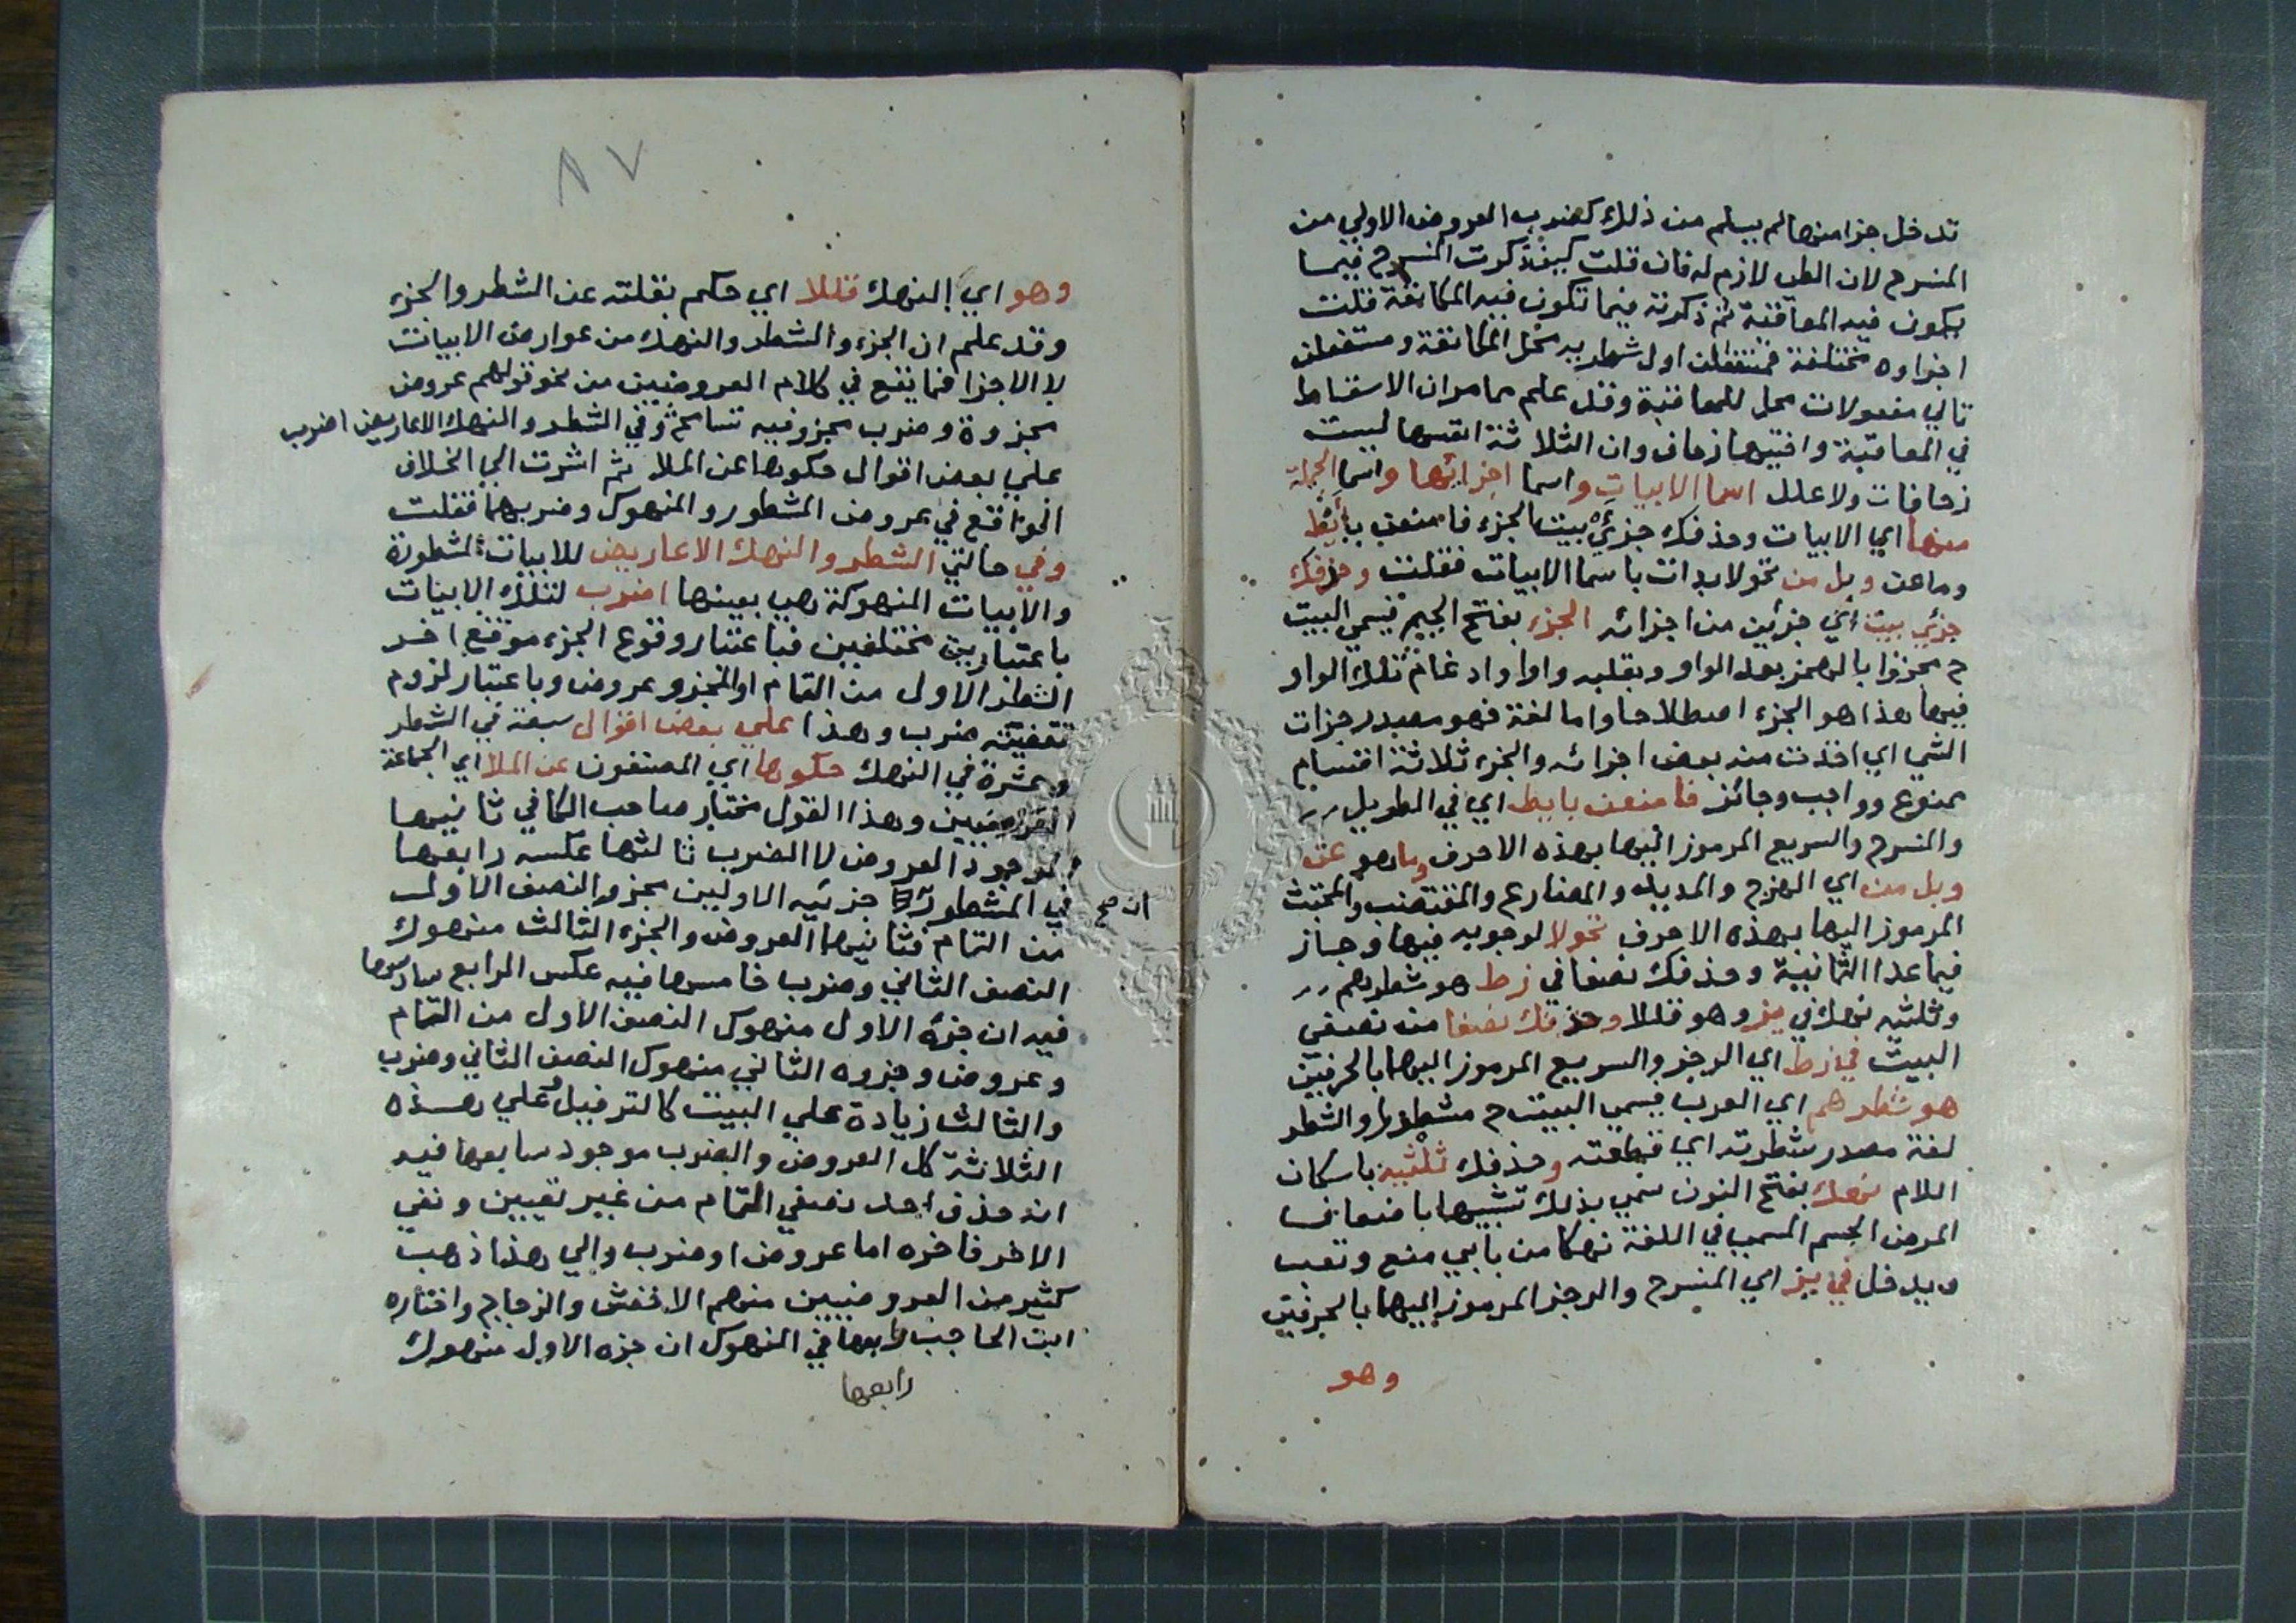 تدخل جزا منها لم يسلم من ذلك كضرب العروض الاولي من
المنسرح لان الطي لازم له فان قلت كيف ذكرت المنسرح فيما
يكون فيه المعاقبة ثم ذكرته فيما تكون فيه المكانفة قلت
اجزاوه مختلفة فمستفعلن اول شطريه محل المكانفة ومستفعلن
تالي مفعولات محل للمعاقبة وقد علم مما مر ان الاسقاط
في المعاقبة واختيها زحاف وان الثلاثة انفسها ليست
زحافات ولا علل اسما الابيات واسما اجزائها واسما الجملة
منها اي الابيات وحذفك جزئي بيت الجزء فامنعن بايط
وماعن وبل من تحولا بدات باسما الابيات فقلت وحذفك
جزئي بيت اي جزئين من اجزائه الجزء بفتح الجيم فيسمي البيت
ح مجزوا بالهمز بعد الواو وبقلبه واوا وادغام تلك الواو
فيها هذا هو الجزء اصطلاحا واما لغة فهو مصدر جزات
الشي اي اخذت منه بعض اجزائه والجزء ثلاثة اقسام
ممنوع وواجب وجائز فامنعن بايط اي في الطويل
والمنسرح والسريع المرموز اليها بهذه الاحرف
وبل من اي الهزج والمديد والمضارع والمقتضب والمجتث
المرموز اليها بهذه الاحرف تحولا لوجوبه فيها وجاز
فيما عدا الثمانية وحذفك نصفا في زط هو شطرهم
وثلثيه نهك في يز وهو قللا وحذفك نصفا من نصفي
البيت في زط اي الرجز والسريع المرموز اليهما بالحرفين
هو شطرهم اي العرب فيسمي البيت ح مشطورا والشطر
لغة مصدر شطرته اي قطعته وحذفك ثلثيه باسكان
اللام نهك بفتح النون سمي بذلك تشبيها باضعاف
المرض الجسم المسمي في اللغة نهكا من بابي منع وتعب
ويدخل في يز اي المنسرح والرجز المرموز اليهما بالحرفين
وهو
٨٧
وهو اي النهك قللا اي حكم بقلته عن الشطر والجزء
وقد علم ان الجزء والشطر والنهك من عوارض الابيات
لا الاجزا فما يقع في كلام العروضيين من نحو قولهم عروض
مجزوة وضرب مجزو فيه تسامح وفي الشطر والنهك الاعاريض اضرب
علي بعض اقوال حكوها عن الملا ثم اشرت الي الخلاف
الواقع في عروض المشطور والمنهوك وضربهما فقلت
وفي حالتي الشطر والنهك الاعاريض للابيات المشطورة
والابيات المنهوكة هي بعينها اضرب لتلك الابيات
باعتبارين مختلفين فباعتبار وقوع الجزء موقع اخر
الشطر الاول من التمام او المجزو عروض وباعتبار لزوم
تقفيته ضرب وهذا علي بعض اقوال سبعة في الشطر
وعشرة في النهك حكوها اي المصنفون عن الملا اي الجماعة
العروضيين وهذا القول مختار صاحب الكافي ثانيها
الموجود العروض لا الضرب ثالثها عكسه رابعها
في المشطور ان صح جزئيه الاولين مجزو النصف الاول
من التمام فثانيهما العروض والجزء الثالث منهوك
النصف الثاني وضرب خامسها فيه عكس الرابع سادسها
فيه ان جزه الاول منهوك النصف الاول من التمام
وعروض وجزوه الثاني منهوك النصف الثاني وضرب
والثالث زيادة علي البيت كالترفيل وعلي هذه
الثلاثة كل العروض والضرب موجود سابعها فيه
انه حذف احد نصفي التمام من غير تعيين ونفي
الاخر فاخره اما عروض او ضرب والي هذا ذهب
كثير من العروضيين منهم الاخفش والزجاج واختاره
ابن الحاجب رابعها في المنهوك ان جزه الاول منهوك
رابعها